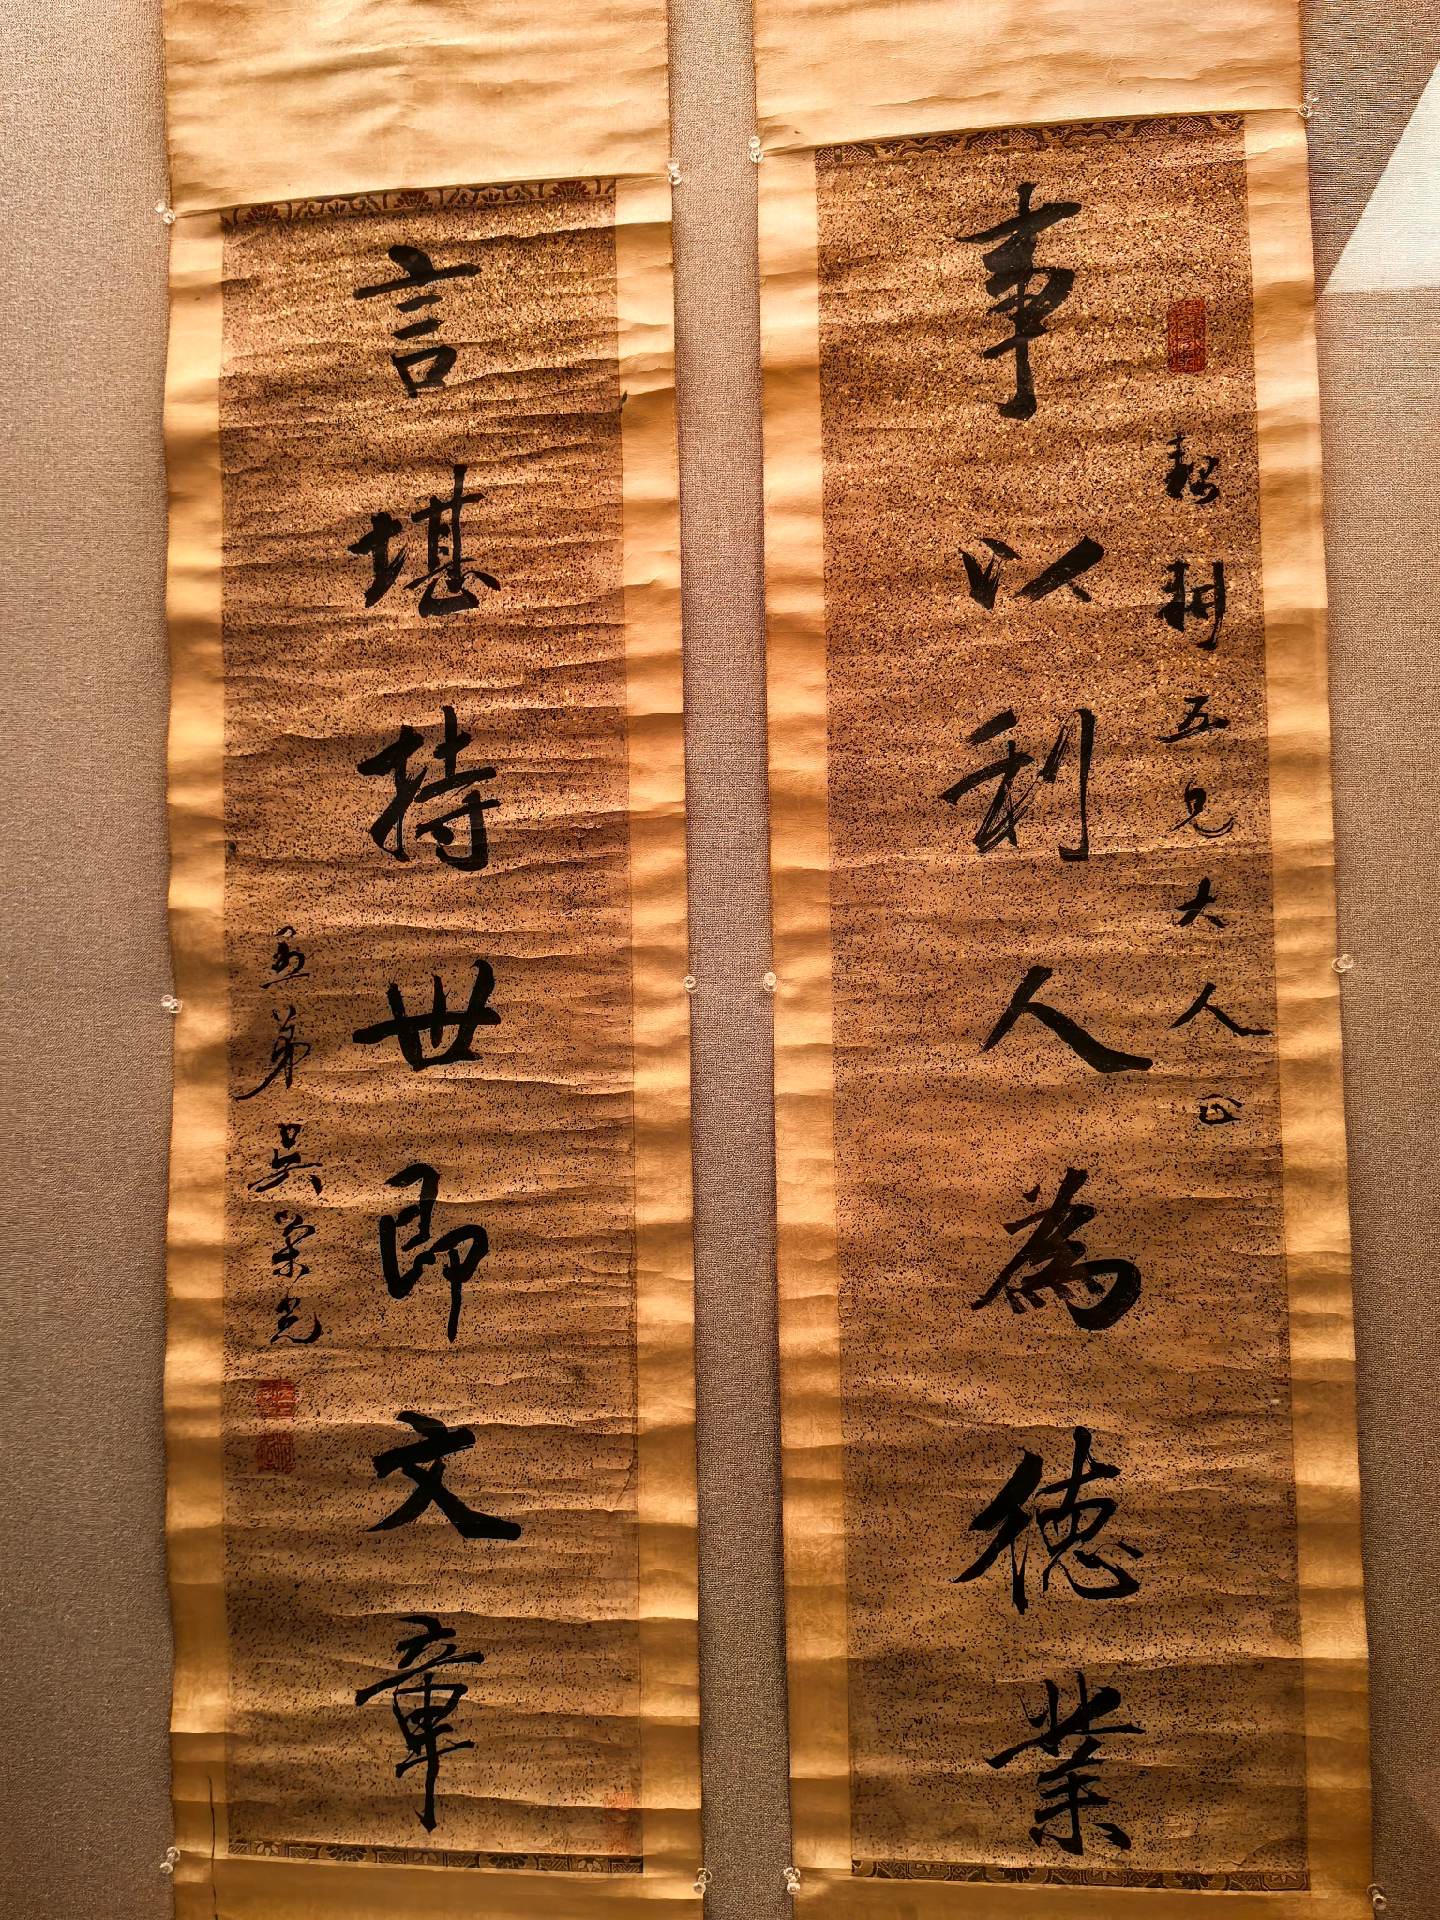 事以利人為德業
五兄大人正
言堪持世即文章
愚弟吳榮光